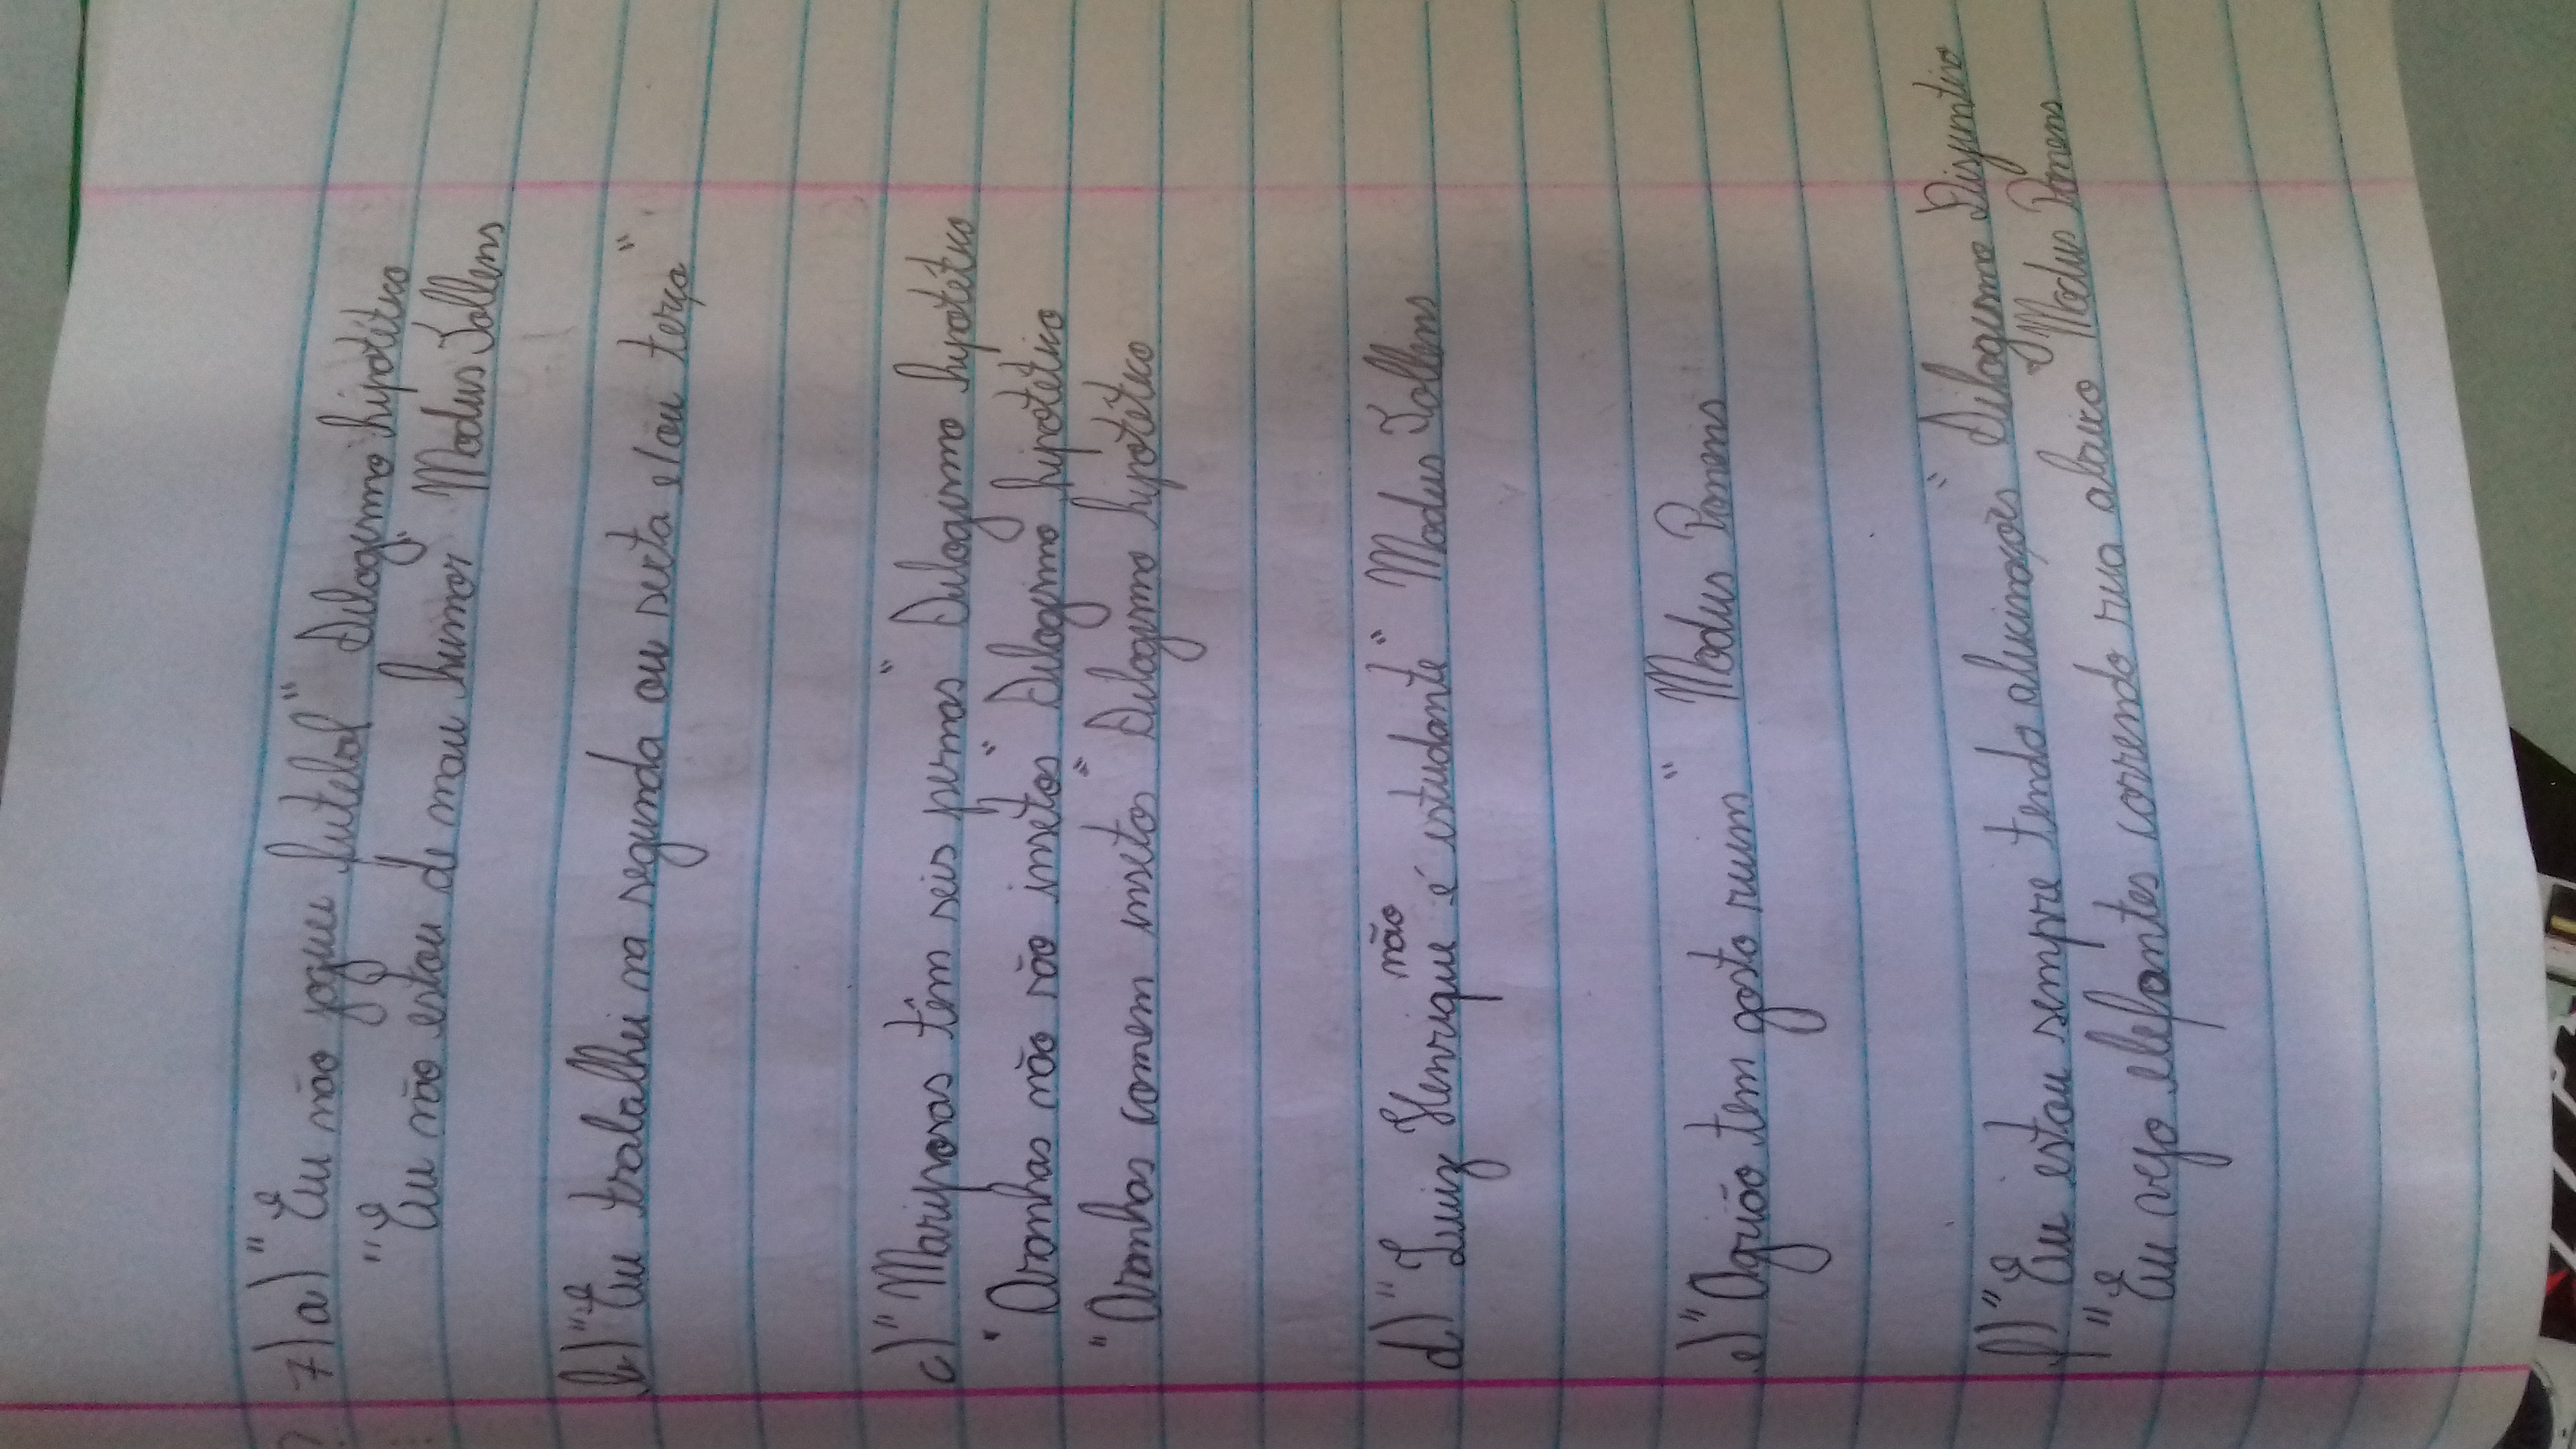 7) a) "Eu não joguei futebol" Silogismo hipotético
"Eu não estou de mau humor" Modus Tollens
b) "Eu trabalhei na segunda ou sexta e/ou terça"
c) "Mariposas têm seis pernas" Silogismo hipotético
"Aranhas não são insetos" Silogismo hipotético
"Aranhas comem insetos" Silogismo hipotético
d) "Luiz Henrique não é estudante" Modus Tollens
e) "Agrião tem gosto ruim" Modus Ponens
f) "Eu estou sempre tendo alucinações" Silogismo Disjuntivo
"Eu vejo elefantes correndo rua abaixo" Modus Ponens